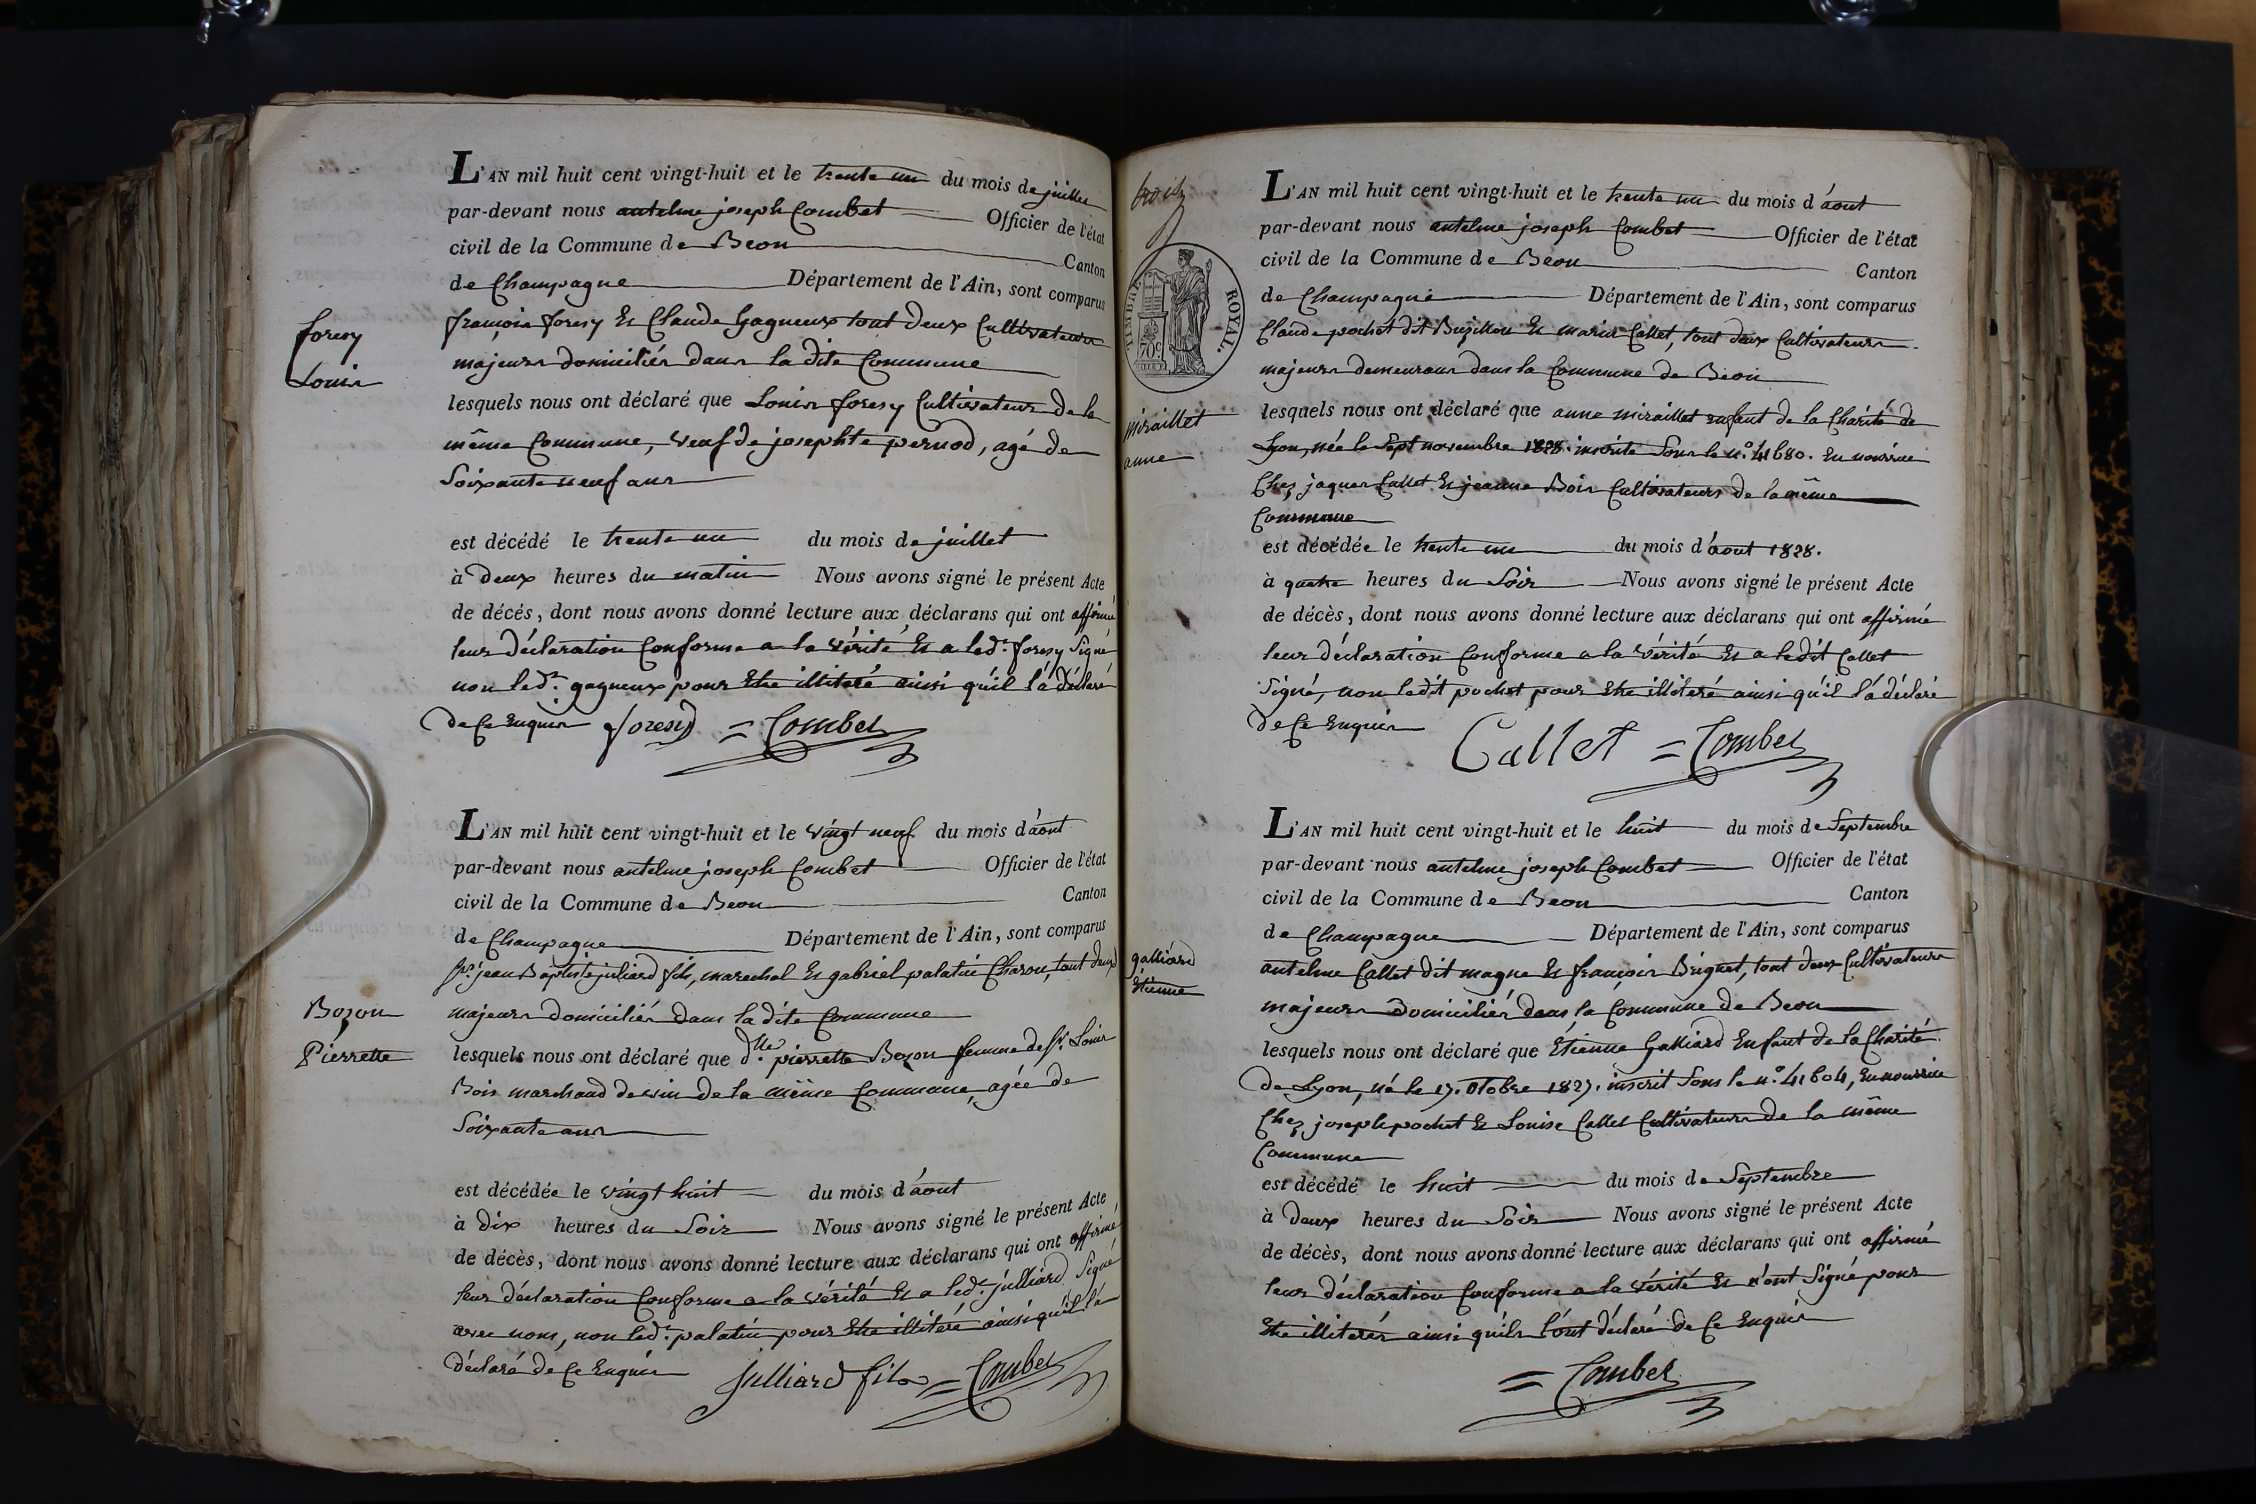 L'AN mil huit cent vingt-huit et le trente un du mois de juillet
par-devant nous antelme joseph Combet Officier de l'état
civil de la Commune de Beon Canton
de Champagne Département de l'Ain, sont comparus
forery
Louis
françois forery Et Claude Gagneux tout deux Cultivateurs
majeurs domiciliés dans la dite Commune
lesquels nous ont déclaré que Louis forery Cultivateur de la
même Commune, veuf de josephte pernod, agé de
Soixante neuf ans
est décédé le trente un du mois de juillet
à deux heures du matin Nous avons signé le présent Acte
de décés, dont nous avons donné lecture aux déclarans qui ont affirmé
leur déclaration Conforme a la vérité Et a led.t forery Signé
non led.t gagneux pour Etre illiteré ainsi qu'il l'á déclaré
de Ce Enquis forery = Combet
L'AN mil huit cent vingt-huit et le vingt neuf du mois d'aout
par-devant nous antelme joseph Combet Officier de l'état
civil de la Commune de Beon Canton
de Champagne Département de l'Ain, sont comparus
Bozon
Pierrette
S.r jean Baptiste juliard fils, marechal Et gabriel palatin Charon, tout deux
majeurs domiciliés dans la dite Commune
lesquels nous ont déclaré que d.lle pierrette Bozon femme de S.r Louis
Bois marchand de vin de la même Commune, agée de
Soixante ans
est décédée le vingt huit du mois d'aout
à dix heures du Soir Nous avons signé le présent Acte
de décès, dont nous avons donné lecture aux déclarans qui ont affirmé
leur déclaration Conforme a la vérité Et a led.t julliard Signé
avec nous, non led.t palatin pour Etre illiteré ainsi qu'il l'á
déclaré de Ce Enquis Julliard fils = Combet
TIMBRE ROYAL.
70 c
L'AN mil huit cent vingt-huit et le trente un du mois d'aout
par-devant nous antelme joseph Combet Officier de l'état
civil de la Commune de Beon Canton
de Champagne Département de l'Ain, sont comparus
Claude pochet dit Bujillon Et marin Callet, tout deux Cultivateurs
majeurs demeurans dans la Commune de Beon
miraillet
anne
lesquels nous ont déclaré que anne miraillet enfant de la Charité de
Lyon, née le Sept novembre 1828. inscrite Sous le n.o 41680. En nourrice
Chez jaques Callet Et jeanne Bois Cultivateurs de la même
Commune
est décédée le trente un du mois d'aout 1828.
à quatre heures du Soir Nous avons signé le présent Acte
de décès, dont nous avons donné lecture aux déclarans qui ont affirmé
leur déclaration Conforme a la vérité Et a ledit Callet
Signé, non ledit pochet pour Etre illiteré ainsi qu'il l'á déclaré
de Ce Enquis Callet = Combet
L'AN mil huit cent vingt-huit et le huit du mois de Septembre
par-devant nous antelme joseph Combet Officier de l'état
civil de la Commune de Beon Canton
de Champagne Département de l'Ain, sont comparus
galliard
Etienne
antelme Callet dit magne Et françois Briguet, tout deux Cultivateurs
majeurs domiciliés dans la Commune de Beon
lesquels nous ont déclaré que Etienne Galliard Enfant de la Charité
de Lyon, né le 17. Octobre 1827. inscrit Sous le n.o 41604, En nourrice
Chez joseph pochet Et Louise Callet Cultivateurs de la même
Commune
est décédé le huit du mois de Septembre
à deux heures du Soir Nous avons signé le présent Acte
de décès, dont nous avons donné lecture aux déclarans qui ont affirmé
leur déclaration Conforme a la vérité Et n'ont Signé pour
Etre illiterés ainsi qu'ils l'ont déclaré de Ce Enquis
= Combet